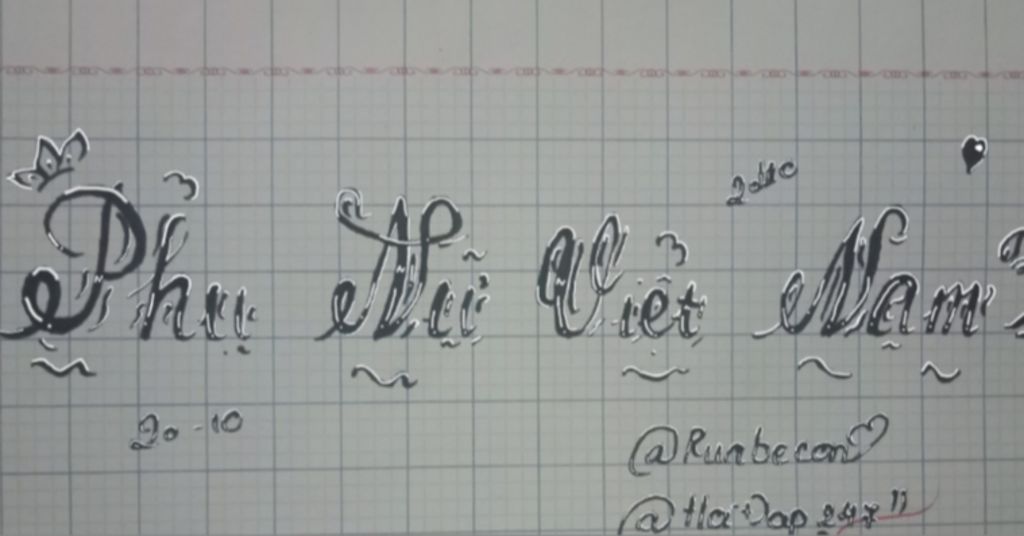 2010
Phụ Nữ Việt Nam
20-10
@Ruabecon♡
@HoiDap247"